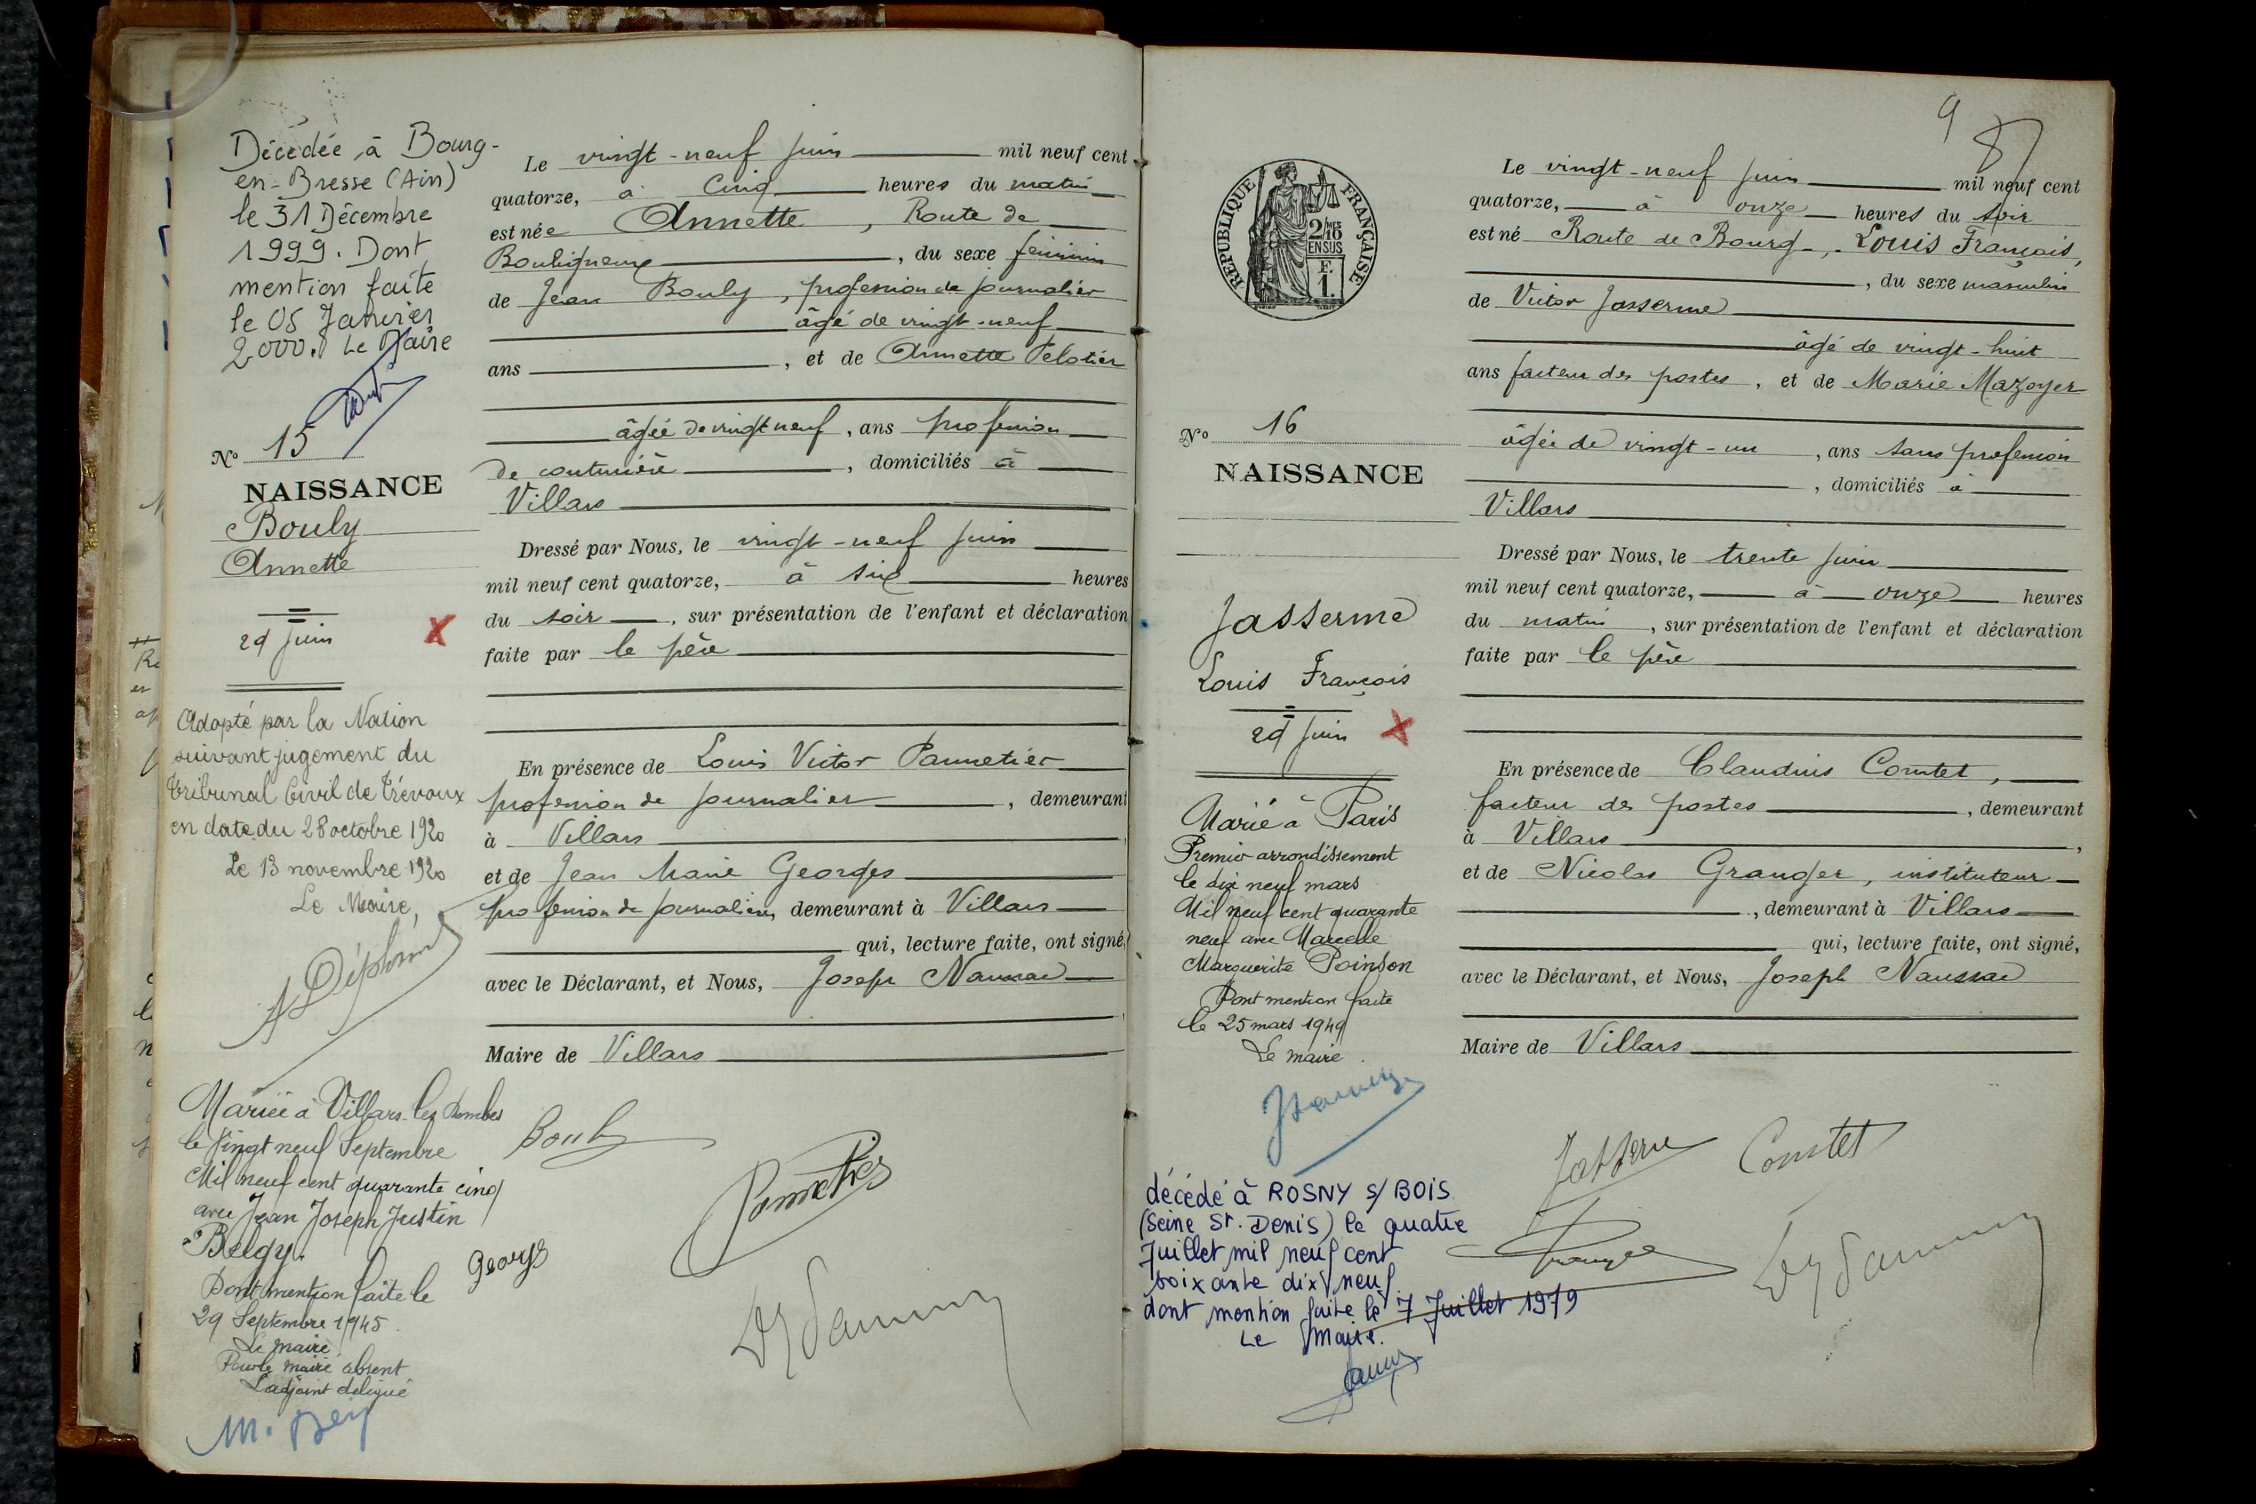 Décédée à Bourg-
en-Bresse (Ain)
le 31 Décembre
1999. Dont
mention faite
le 05 Janvier
2000. Le Maire
No 15
NAISSANCE
Bouly
Annette
29 Juin
X
Adopté par la Nation
suivant jugement du
Tribunal Civil de Trévoux
en date du 28 octobre 1920
Le 13 novembre 1920
Le Maire,
Mariée à Villars-les Dombes
le Vingt neuf Septembre
Mil neuf cent quarante cinq
avec Jean Joseph Justin
Belgy.
Dont mention faite le
29 Septembre 1945.
Le maire
Pour le maire absent
L'adjoint délégué
M. Bey
Le vingt-neuf juin mil neuf cent
quatorze, à cinq heures du matin
est née Annette, Route de
Bouligneux, du sexe féminin
de Jean Bouly, profession de journalier
âgé de vingt-neuf
ans, et de Annette Pelotier
âgée de vingt neuf, ans profession
de couturière, domiciliés à
Villars
Dressé par Nous, le vingt-neuf juin
mil neuf cent quatorze, à six heures
du soir, sur présentation de l'enfant et déclaration
faite par le père
En présence de Louis Victor Pannetier
profession de journalier, demeurant
à Villars
et de Jean Marie Georges
profession de journalier, demeurant à Villars
qui, lecture faite, ont signé,
avec le Déclarant, et Nous, Joseph
Maire de Villars
Bouly
Georges
9
RÉPUBLIQUE FRANÇAISE
2/10 MES
EN SUS
F.
1.
No 16
NAISSANCE
Jasserme
Louis François
29 Juin
X
Marié à Paris
Premier arrondissement
le dix neuf mars
Mil neuf cent quarante
neuf avec Marcelle
Marguerite Poinson
Dont mention faite
le 25 mars 1949
Le maire.
décédé à ROSNY s/ BOIS
(Seine St. Denis) le quatre
Juillet mil neuf cent
soixante dix neuf
dont mention faite le 7 Juillet 1979
Le Maire.
Le vingt-neuf juin mil neuf cent
quatorze, à onze heures du soir
est né Route de Bourg, Louis François,
, du sexe masculin
de Victor Jasserme
âgé de vingt-huit
ans facteur des postes, et de Marie Mazoyer
âgée de vingt-un, ans sans profession
, domiciliés à
Villars
Dressé par Nous, le trente juin
mil neuf cent quatorze, à onze heures
du matin, sur présentation de l'enfant et déclaration
faite par le père
En présence de Claudius Comtet,
facteur des postes, demeurant
à Villars,
et de Nicolas Granger, instituteur
, demeurant à Villars
qui, lecture faite, ont signé,
avec le Déclarant, et Nous, Joseph
Maire de Villars
Jasserme Comtet